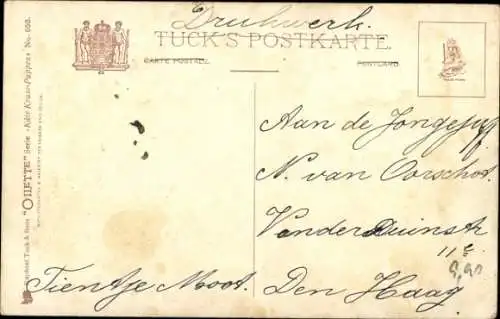 Drukwerk.
TUCK'S POSTKARTE
CARTE POSTALE
POSTCARD
Raphael Tuck & Sons "OILETTE" Serie
No. 650.
Aan de Jongejuf
N. van Oorschot.
Vonderduinstr
11
9,90
Den Haag
Tientje Moot.